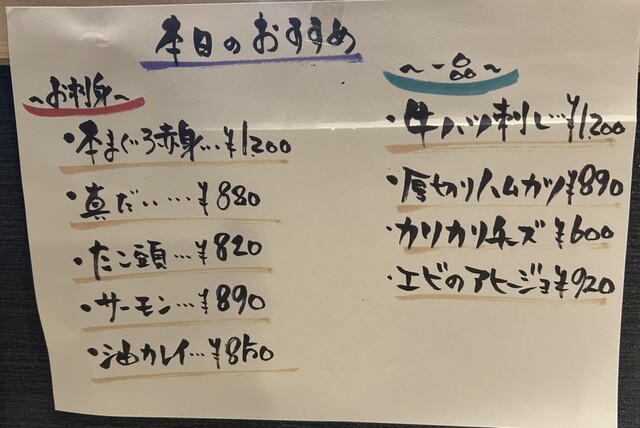 本日のおすすめ
~お刺身~
・本まぐろ赤身…¥1,200
・真だい…¥880
・たこ頭…¥820
・サーモン…¥890
・油カレイ…¥850
~一品~
・牛ハツ刺し…¥1,200
・厚切りハムカツ¥890
・カリカリチーズ¥600
・エビのアヒージョ¥920